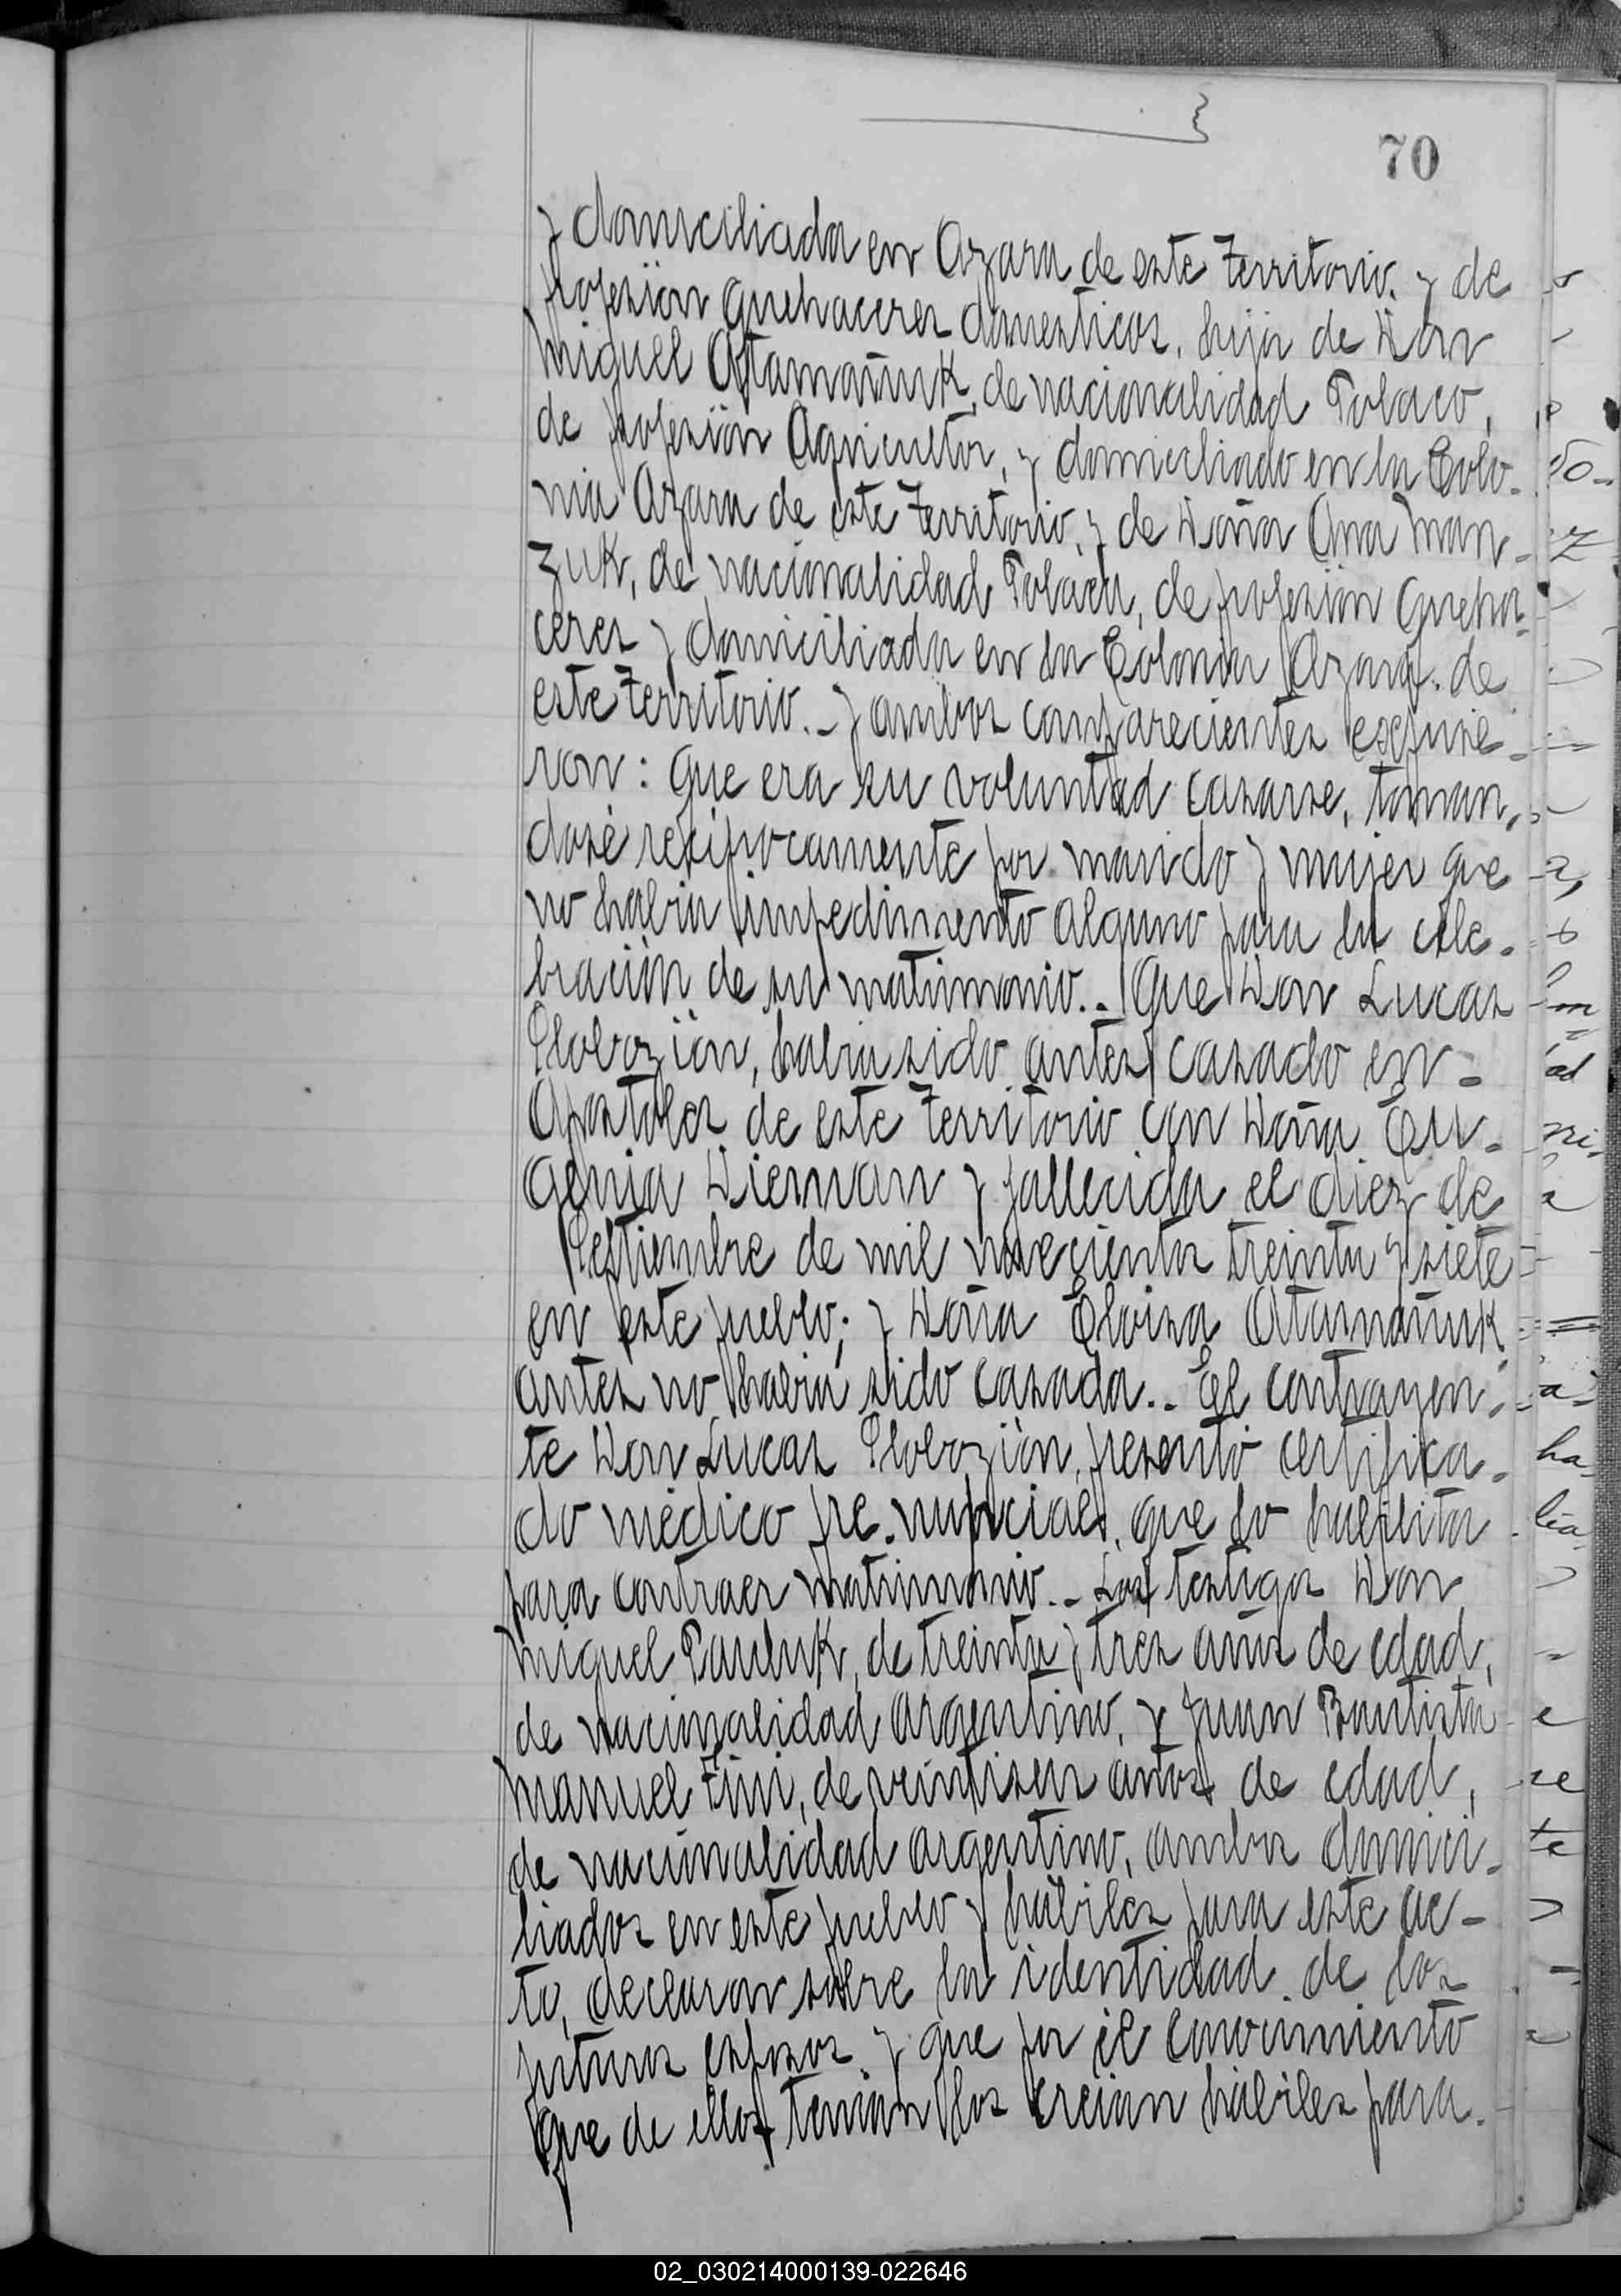 70
y domiciliada en Azara de este Territorio. y de
profesión Quehaceres domesticos, hija de Don
Miguel Atamañuk, de nacionalidad Polaco,
de profesión Agricultor, y domiciliado en la Colo-
nia Azara de este Territorio, y de Doña Ana Man-
zuk, de nacionalidad Polaca, de profesión Queha-
ceres y domiciliada en la Colonia Azara. de
este Territorio.- y ambos comparecientes expusie-
ron: Que era su voluntad casarse, toman-
dose resiprocamente por marido y mujer que
no habia impedimento alguno para la cele-
bración de su matrimonio.- Que Don Lucas
Slobozión, habia sido antes casado en-
Apostoles de este Territorio con Doña Eu-
genia Dieman y fallecida el diez de
Septiembre de mil novecientos treinta y siete
en este pueblo; y Doña Eloisa Atamañuk
antes no habia sido casada.- El contrayen-
te Don Lucas Slobozión, presentó certifica-
do médico pre-nupcial, que lo habilita
para contraer matrimonio.- Los testigos Don
Miguel Pauluk, de treinta y tres años de edad,
de nacionalidad argentino, y Juan Bautista
Manuel Zini, de veintiseis años de edad,
de nacionalidad argentino, ambos domici-
liados en este pueblo y hábiles para este ac-
to, declaran sobre la identidad de los
futuros esposos y que por el conocimiento
que de ellos tenian los creian hábiles para.
02_030214000139-022646